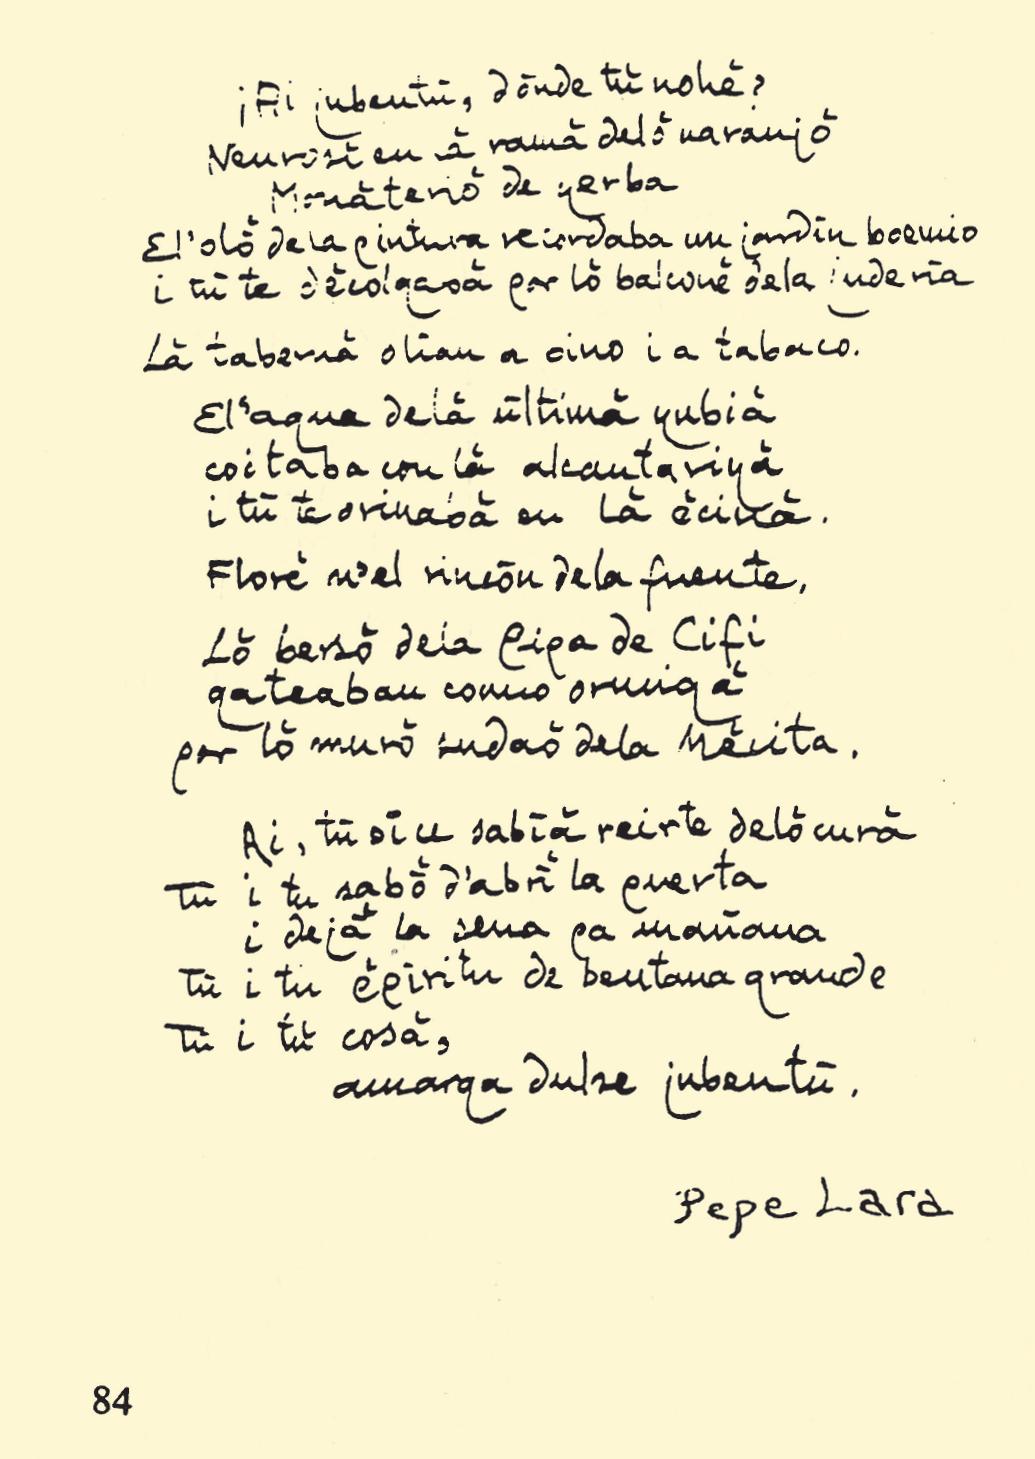 ¡Ai jubentū, dōnde tŭ nohĕ?
Neurosĭ en lă ramă delŏ naranjŏ
Monăteriŏ de yerba
El'olŏ dela pintura recordaba un jardīn boemio
i tū te dĕcolgabă por lŏ balconĕ dela juderīa
Lă tabernă olīan a bino i a tabaco.
El'agua delă ūltimă yubiă
coitaba con lă alcantariyă
i tū te orinabă en lă ĕcină.
Florĕ n'el rincōn dela fuente,
Lŏ bersŏ dela Pipa de Cifi
gateaban como ormigă
por lŏ murŏ sudaŏ dela Mĕcita.
Ai, tū sī ce sabīă reirte delŏ cură
Tū i tu sabŏ d'abrī la puerta
i dejā la sena pa mañana
Tū i tu ĕpīritu de bentana grande
Tū i tŭ cosă,
amarga dulse jubentū.
Pepe Lara
84